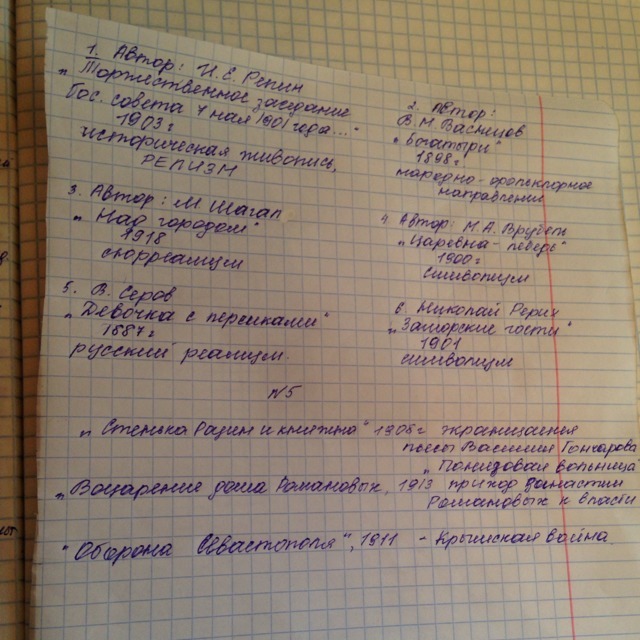 1. Автор: И.Е. Репин
„Торжественное заседание
Гос. совета 7 мая 1901 года..."
1903 г
историческая живопись,
РЕПИЗМ
2. Автор:
В.М. Васнецов
„Богатыри"
1898 г.
народно-фольклорное
направлении
3. Автор: М Шагал
„Над городом"
1918
сюрреализм
4. Автор: М.А. Врубель
„Царевна-лебедь"
1900 г
символизм
5. В. Серов
„Девочка с персиками"
1887 г
русский реализм.
6. Николай Рерих
„Заморские гости"
1901
символизм
№5
„Стенька Разин и княжна" 1908 г экранизация
пьесы Василия Гончарова
„Понизовая вольница"
„Воцарение дома Романовых, 1913 приход династии
Романовых к власти
"Оборона Севастополя", 1911 - Крымская война